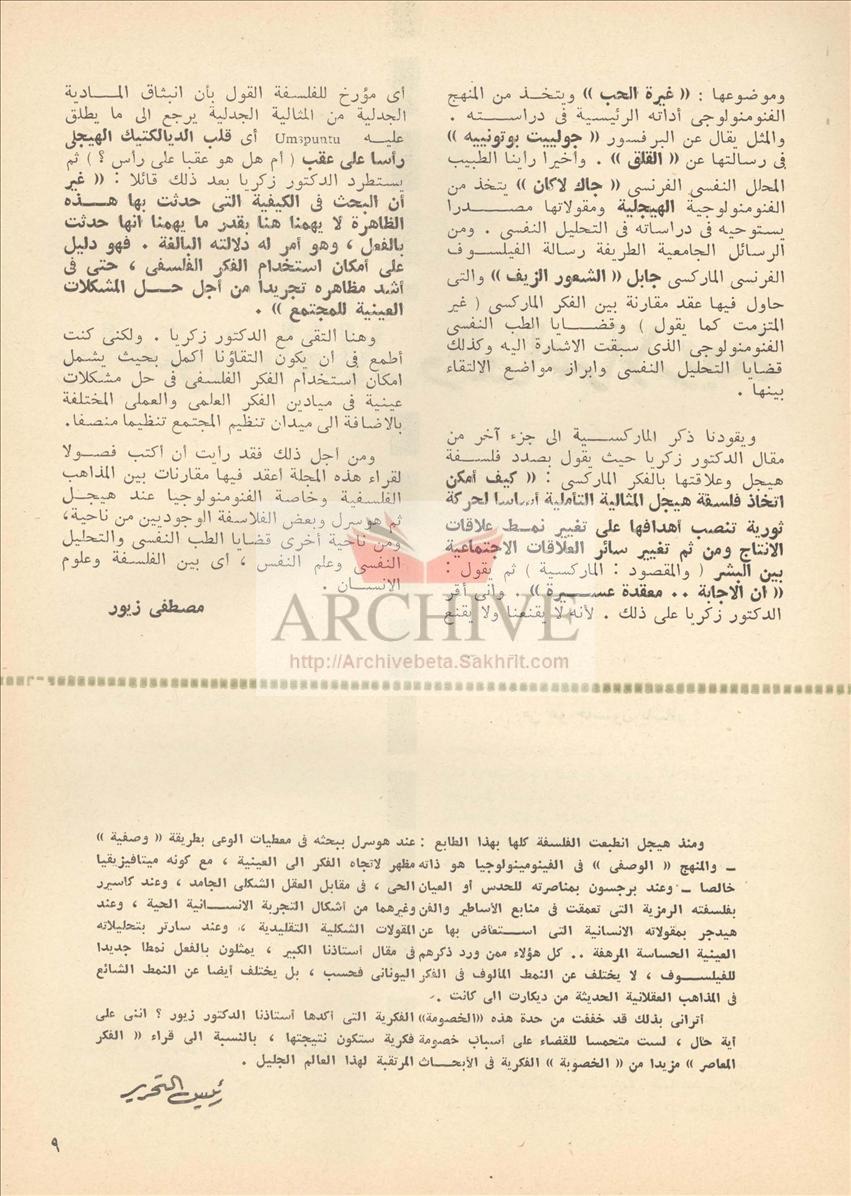 وموضوعها : « غيرة الحب » ويتخذ من المنهج
الفنومنولوجى أداته الرئيسية فى دراسته .
والمثل يقال عن البرفسور « جولييت بوتونييه »
فى رسالتها عن « القلق » . وأخيرا رأينا الطبيب
المحلل النفسى الفرنسى « جاك لاكان » يتخذ من
الفنومنولوجية الهيجلية ومقولاتها مصدرا
يستوحيه فى دراساته فى التحليل النفسى . ومن
الرسائل الجامعية الطريفة رسالة الفيلسوف
الفرنسى الماركسى جابل « الشعور الزيف » والتى
حاول فيها عقد مقارنة بين الفكر الماركسى ( غير
المتزمت كما يقول ) وقضايا الطب النفسى
الفنومنولوجى الذى سبقت الاشارة اليه وكذلك
قضايا التحليل النفسى وابراز مواضع الالتقاء
بينها .
ويقودنا ذكر الماركسية الى جزء آخر من
مقال الدكتور زكريا حيث يقول بصدد فلسفة
هيجل وعلاقتها بالفكر الماركسى : « كيف أمكن
اتخاذ فلسفة هيجل المثالية التأملية أساسا لحركة
ثورية تنصب أهدافها على تغيير نمط علاقات
الانتاج ومن ثم تغيير سائر العلاقات الاجتماعية
بين البشر ( والمقصود : الماركسية ) ثم يقول :
« ان الاجابة .. معقدة عسيرة » . وانى أقر
الدكتور زكريا على ذلك . لأنه لا يقنعنا ولا يقنع
أى مؤرخ للفلسفة القول بأن انبثاق المادية
الجدلية من المثالية الجدلية يرجع الى ما يطلق
عليه Umspuntu أى قلب الديالكتيك الهيجلى
رأسا على عقب ( أم هل هو عقبا على رأس ؟ ) ثم
يستطرد الدكتور زكريا بعد ذلك قائلا : « غير
أن البحث فى الكيفية التى حدثت بها هذه
الظاهرة لا يهمنا هنا بقدر ما يهمنا انها حدثت
بالفعل ، وهو أمر له دلالته البالغة . فهو دليل
على أمكان استخدام الفكر الفلسفى ، حتى فى
أشد مظاهره تجريدا من أجل حل المشكلات
العينية للمجتمع » .
وهنا التقى مع الدكتور زكريا . ولكنى كنت
أطمع فى ان يكون التقاؤنا أكمل بحيث يشمل
امكان استخدام الفكر الفلسفى فى حل مشكلات
عينية فى ميادين الفكر العلمى والعملى المختلفة
بالاضافة الى ميدان تنظيم المجتمع تنظيما منصفا.
ومن أجل ذلك فقد رأيت أن أكتب فصولا
لقراء هذه المجلة أعقد فيها مقارنات بين المذاهب
الفلسفية وخاصة الفنومنولوجيا عند هيجل
ثم هوسرل وبعض الفلاسفة الوجوديين من ناحية،
ومن ناحية أخرى قضايا الطب النفسى والتحليل
النفسى وعلم النفس ، أى بين الفلسفة وعلوم
الانسان .
مصطفى زيور
ARCHIVE
http://Archivebeta.Sakhrit.com
ومنذ هيجل انطبعت الفلسفة كلها بهذا الطابع : عند هوسرل ببحثه فى معطيات الوعى بطريقة « وصفية »
ــ والمنهج « الوصفى » فى الفينومينولوجيا هو ذاته مظهر لاتجاه الفكر الى العينية ، مع كونه ميتافيزيقيا
خالصا ــ وعند برجسون بمناصرته للحدس أو العيان الحى ، فى مقابل العقل الشكلى الجامد ، وعند كاسيرر
بفلسفته الرمزية التى تعمقت فى منابع الأساطير والفن وغيرهما من أشكال التجربة الانسانية الحية ، وعند
هيدجر بمقولاته الانسانية التى استعاض بها عن المقولات الشكلية التقليدية ، وعند سارتر بتحليلاته
العينية الحساسة المرهفة .. كل هؤلاء ممن ورد ذكرهم فى مقال أستاذنا الكبير ، يمثلون بالفعل نمطا جديدا
للفيلسوف ، لا يختلف عن النمط المألوف فى الفكر اليونانى فحسب ، بل يختلف أيضا عن النمط الشائع
فى المذاهب العقلانية الحديثة من ديكارت الى كانت .
أترانى بذلك قد خففت من حدة هذه «الخصومة» الفكرية التى أكدها أستاذنا الدكتور زيور ؟ اننى على
أية حال ، لست متحمسا للقضاء على أسباب خصومة فكرية ستكون نتيجتها ، بالنسبة الى قراء « الفكر
المعاصر » مزيدا من « الخصوبة » الفكرية فى الأبحاث المرتقبة لهذا العالم الجليل .
رئيس التحرير
٩